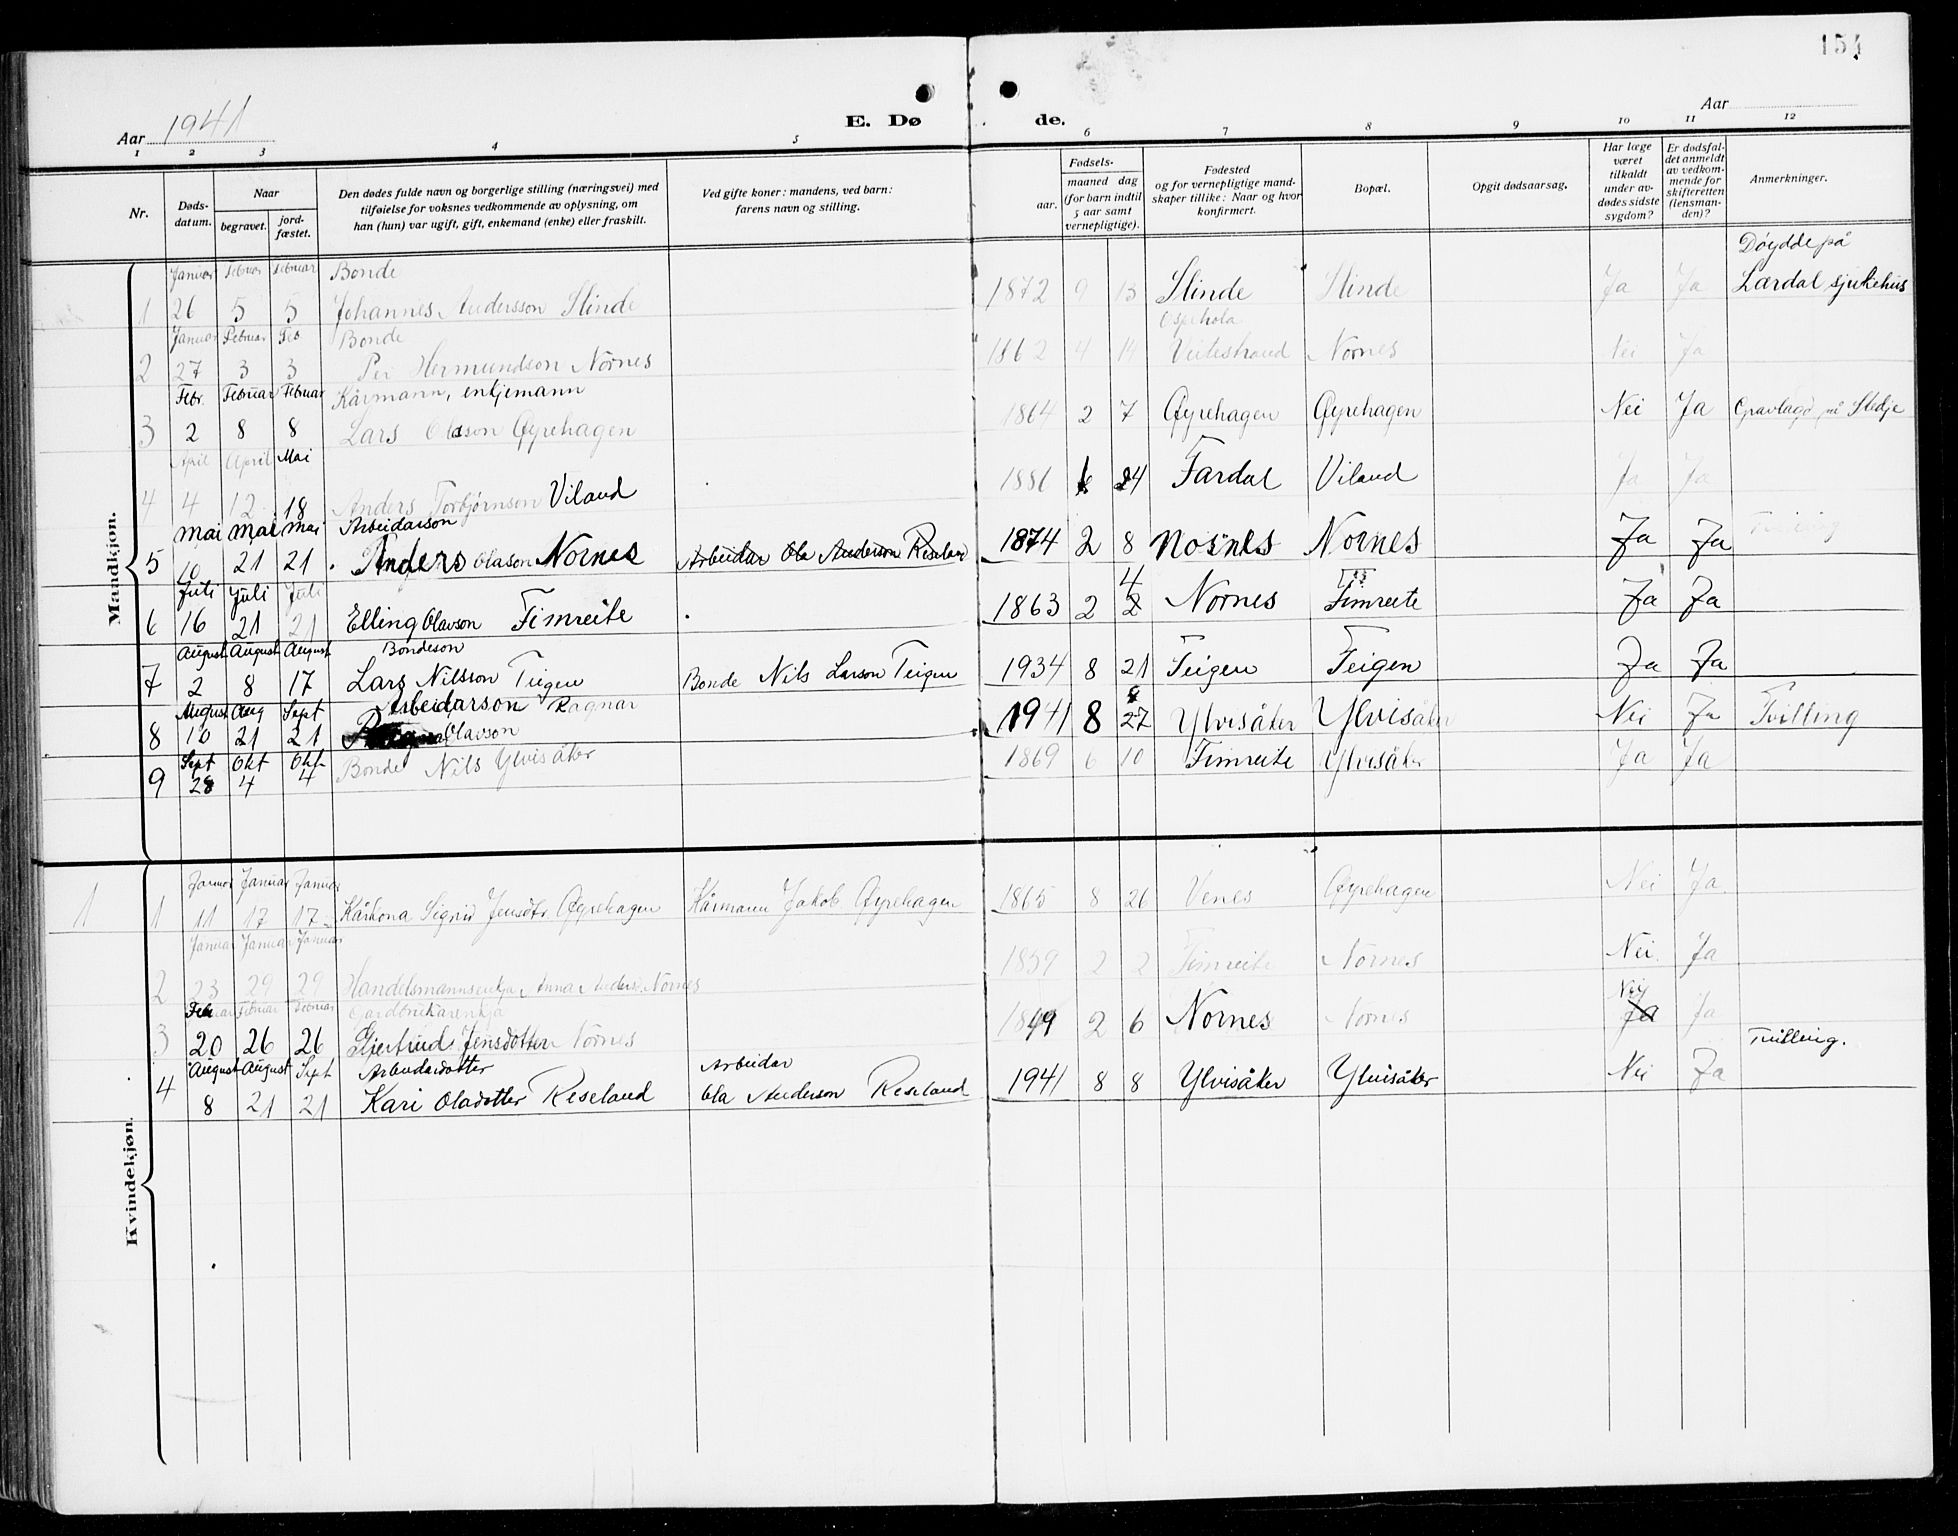 154
Aar 1941
E. Døde.
Aar
1 2 3 4 5 6 7 8 9 10 11 12
Nr.
Døds-
datum.
Naar
begravet.
jord-
fæstet.
Den dødes fulde navn og borgerlige stilling (næringsvei) med
tilføielse for voksnes vedkommende av oplysning, om
han (hun) var ugift, gift, enkemand (enke) eller fraskilt.
Ved gifte koner: mandens, ved barn:
farens navn og stilling.
Fødsels-
aar.
maaned dag
(for barn indtil
5 aar samt
vernepligtige).
Fødested
og for vernepligtige mand-
skaper tillike: Naar og hvor
konfirmert.
Bopæl.
Opgit dødsaarsag.
Har læge
været
tilkaldt
under av-
dødes sidste
sygdom?
Er dødsfal-
det anmeldt
av vedkom-
mende for
skifteretten
(lensman-
den)?
Anmerkninger.
Mandkjøn.
Januar Februar Februar Bonde Døydde på
1 26 5 5 Johannes Andersson Slinde 1872 9 13 Slinde Slinde Ja Ja Lærdal sjukehus
Januar Februar Feb Bonde Ospehola
2 27 3 3 Per Hermundson Nornes 1862 4 14 Veitestrand Nornes Nei Ja
Febr. Februar Februar Kårmann, enkjemann
3 2 8 8 Lars Olsson Øyrehagen 1864 2 7 Øyrehagen Øyrehagen Nei Ja Gravlagd på Stedje
April April Mai
4 4 12 18 Anders Torbjørnson Viland 1881 6 24 Fardal Viland Ja Ja
mai mai mai Arbeidarson Tvilling
5 10 21 21 Anders Olason Nornes Arbeidar Ola Anderson Reseland 1874 2 8 Nornes Nornes Ja Ja
Juli Juli Juli
6 16 21 21 Elling Olavson Fimreite 1863 2 4 Nornes Fimreite Ja Ja
August August August Bondeson
7 2 8 17 Lars Nilsson Teigen Bonde Nils Larson Teigen 1934 8 21 Teigen Teigen Ja Ja
August Aug Sept Arbeidarson Ragnar
8 10 21 21 Olavson 1941 8 8 Ylvisåker Ylvisåker Nei Ja Tvilling
Sept Okt Okt
9 28 4 4 Bonde Nils Ylvisåker 1869 6 10 Fimreite Ylvisåker Ja Ja
Kvindekjøn.
Januar Januar Januar
1 1 11 17 17 Kårkona Sigrid Jensdtr. Øyrehagen Kårmann Jakob Øyrehagen 1865 8 26 Venes Øyrehagen Nei Ja
Januar Januar Januar
2 23 29 29 Handelsmannsenkja Anna Anders. Nornes 1859 2 2 Fimreite Nornes Nei Ja
Februar Februar Februar Gardbrukarenkja Nei
3 20 26 26 Gjertrud Jensdotter Nornes 1849 2 6 Nornes Nornes Ja Ja
August August Sept Arbeidardotter Arbeidar Tvilling.
4 8 21 21 Kari Oladotter Reseland Ola Anderson Reseland 1941 8 8 Ylvisåker Ylvisåker Nei Ja